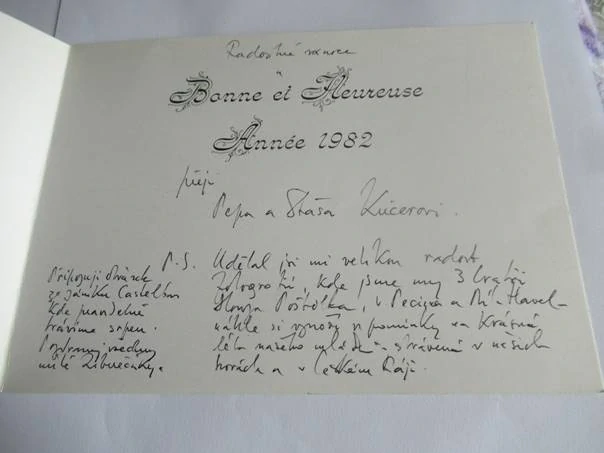 Radostné vánoce
a
Bonne et Heureuse
Année 1982
přejí
Pepa a Stáša Kučerovi.
P.S. Udělal jsi mi velikou radost
fotografií, kde jsme my 3 bratři
Slávka Pošťolka, a
náhle si vzpomínky na krásná
léta našeho mládí strávená v našich
horách a v Českém Ráji.
Připojuji obrázek
ze zámku
kde pravidelně
trávíme srpen.
Pozdravuji všechny
milé Liberečáky.